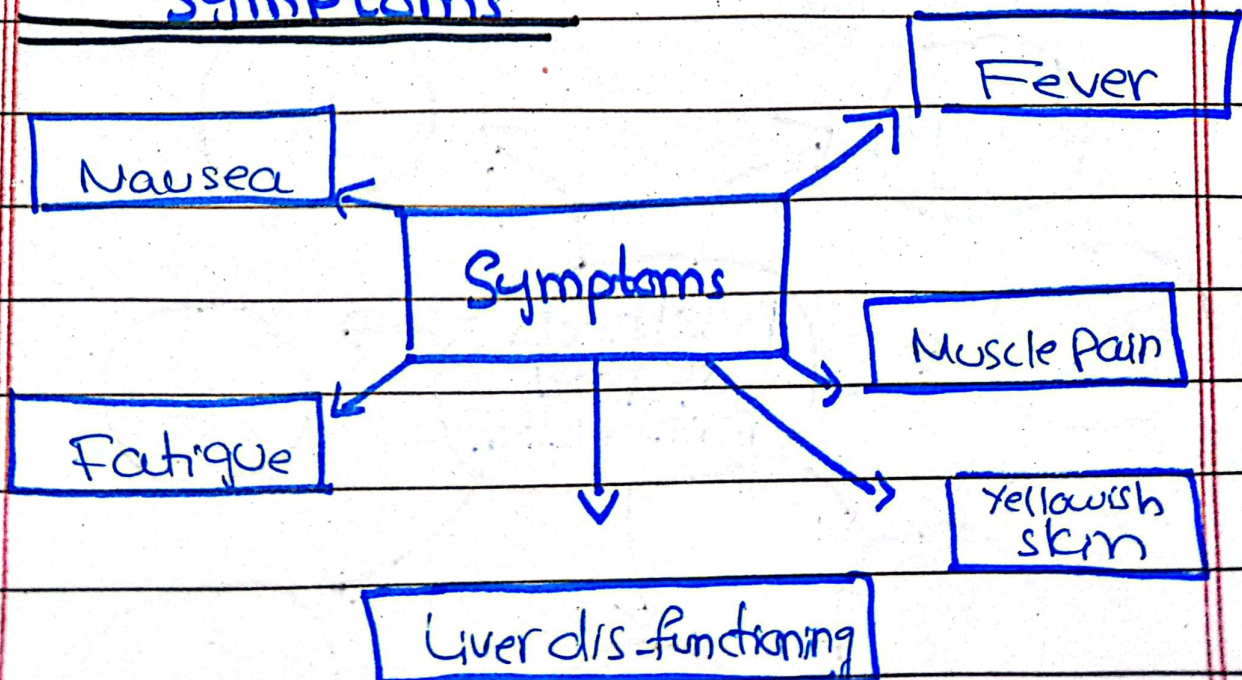 Symptoms
Fever
Nausea
Symptoms
Muscle Pain
Fatigue
Yellowish
skin
Liver dis-functioning